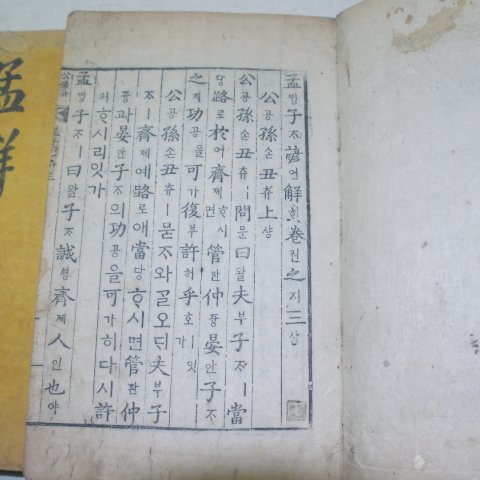 孟밍子ᄌᆞ諺언解ᄒᆡ卷권之지三삼
公공孫손丑츄上샹
公공孫손丑츄ㅣ問문曰왈夫부子ᄌᆞㅣ當
당路로於어齊졔ᄒᆞ시면管관仲즁晏안子ᄌᆞ
之지功공을可가復부許허乎호ㅣ잇가
公공孫손丑츄ㅣ묻ᄌᆞ와ᄀᆞᆯ오ᄃᆡ夫부子
ᄌᆞㅣ齊졔예路로애當당ᄒᆞ시면管관仲
즁과晏안子ᄌᆞ의功공을可가히다시許
허ᄒᆞ시리잇가
孟ᄆᆡᆼ子ᄌᆞㅣ曰왈子ᄌᆞ誠셩齊졔人인也야